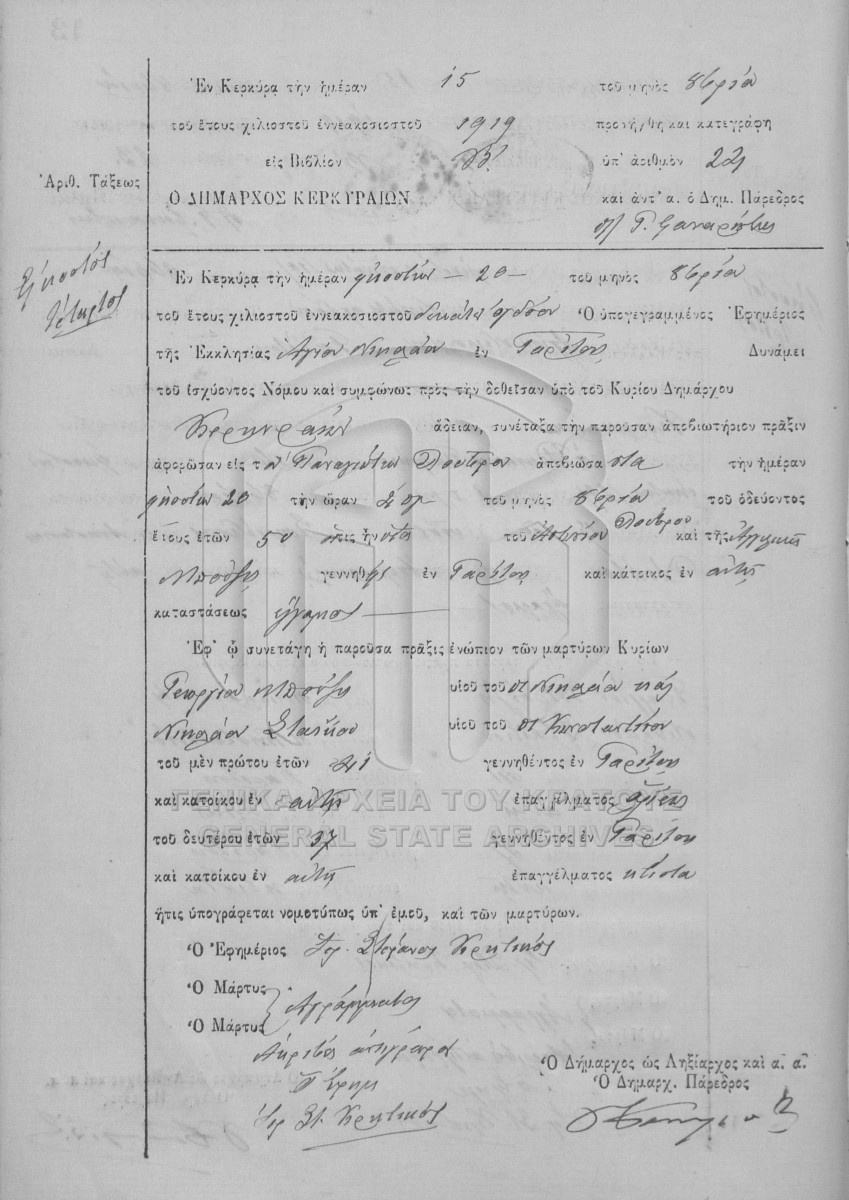 Ἐν Κερκύρᾳ τὴν ἡμέραν 15 τοῦ μηνὸς 8βρίου
τοῦ ἔτους χιλιοστοῦ ἐννεακοσιοστοῦ 1919 προσήχθη καὶ κατεγράφη
εἰς Βιβλίον Β' ὑπ' ἀριθμὸν 221
Ἀριθ. Τάξεως
Ὁ ΔΗΜΑΡΧΟΣ ΚΕΡΚΥΡΑΙΩΝ καὶ ἀντ' α. ὁ Δημ. Πάρεδρος
Εἰκοστὸς
τέταρτος
Ἐν Κερκύρᾳ τὴν ἡμέραν εἰκοστὴν - 20 - τοῦ μηνὸς 8βρίου
τοῦ ἔτους χιλιοστοῦ ἐννεακοσιοστοῦ δεκάτου ὀγδόου Ὁ ὑπογεγραμμένος Ἐφημέριος
τῆς Ἐκκλησίας Ἁγίου Νικολάου ἐν Γαρίτσῃ Δυνάμει
τοῦ ἰσχύοντος Νόμου καὶ συμφώνως πρὸς τὴν δοθεῖσαν ὑπὸ τοῦ Κυρίου Δημάρχου
Κερκυραίων ἄδειαν, συνέταξα τὴν παροῦσαν ἀποβιωτήριον πρᾶξιν
ἀφορῶσαν εἰς τ ἀποβιώσα τὴν ἡμέραν
εἰκοστὴν 20 τὴν ὥραν τοῦ μηνὸς 8βρίου τοῦ ὁδεύοντος
ἔτους ἐτῶν 50 ὅστις ἦν τοῦ Ἀντωνίου καὶ τῆς Ἀγγελικῆς
Μπούζη γεννηθεὶς ἐν Γαρίτσῃ καὶ κάτοικος ἐν αὐτῇ
καταστάσεως ἔγγαμος
Ἐφ' ᾧ συνετάγη ἡ παροῦσα πρᾶξις ἐνώπιον τῶν μαρτύρων Κυρίων
Γεωργίου Μπούζη υἱοῦ τοῦ Νικολάου καὶ
Νικολάου Σταΐκου υἱοῦ τοῦ Κωνσταντίνου
τοῦ μὲν πρώτου ἐτῶν 41 γεννηθέντος ἐν Γαρίτσῃ
καὶ κατοίκου ἐν αὐτῇ ἐπαγγέλματος
ΓΕΝΙΚΑ ΑΡΧΕΙΑ ΤΟΥ ΚΡΑΤΟΥΣ
GENERAL STATE ARCHIVES
τοῦ δευτέρου ἐτῶν 37 γεννηθέντος ἐν Γαρίτσῃ
καὶ κατοίκου ἐν αὐτῇ ἐπαγγέλματος κτίστου
ἥτις ὑπογράφεται νομοτύπως ὑπ' ἐμοῦ, καὶ τῶν μαρτύρων.
Ὁ Ἐφημέριος Ἱερ. Στέφανος Κρητικός
Ὁ Μάρτυς Ἀγράμματος
Ὁ Μάρτυς
Ἀκριβὲς ἀντίγραφον
Ὁ Ἐφημ.
Ἱερ Στ. Κρητικός
Ὁ Δήμαρχος ὡς Ληξίαρχος καὶ α. α.
Ὁ Δημαρχ. Πάρεδρος